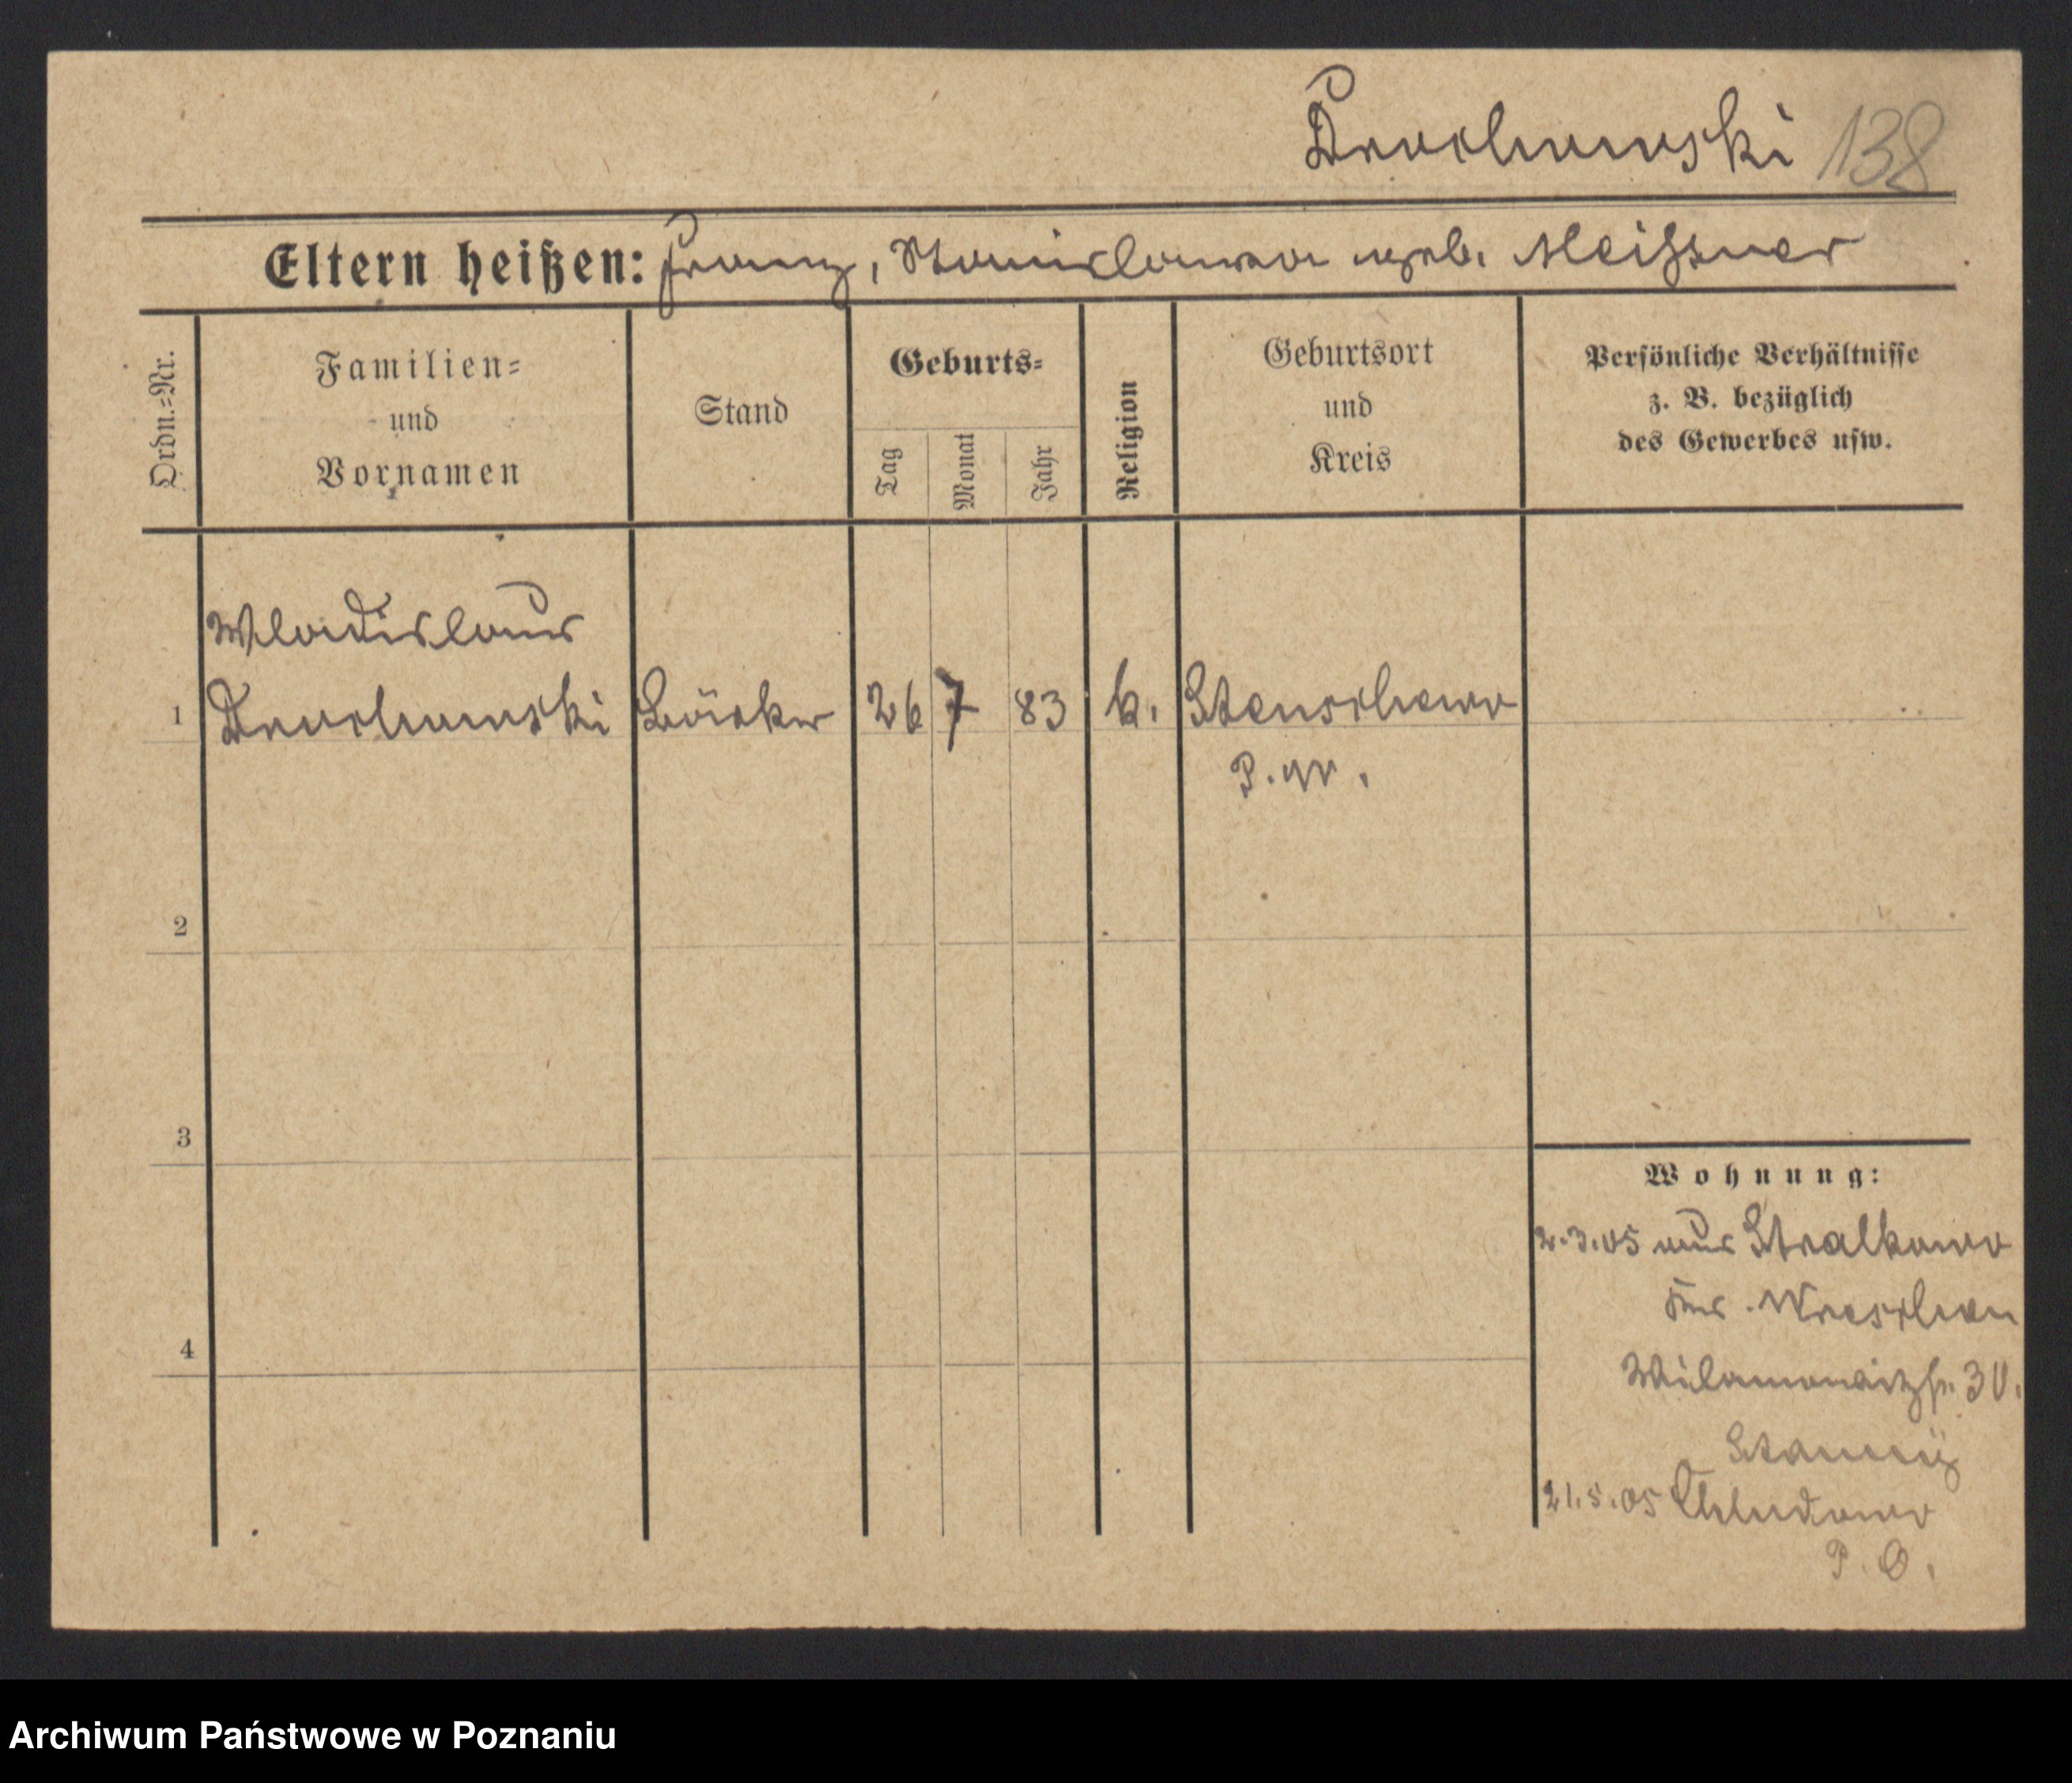 Druchowski 138
Eltern heißen: Franz, Stanislawa geb. Meißner
Ordn.=Nr.
Familien=
und
Vornamen
Stand
Geburts=
Tag
Monat
Jahr
Religion
Geburtsort
und
Kreis
Persönliche Verhältnisse
z. B. bezüglich
des Gewerbes usw.
Wladislaus
1 Druchowski Bäcker 26 7 83 k. Stenschewo
P. W.
2
3
4
Wohnung:
2.3.05 aus Stralkowo
Krs. Wreschen
21.5.05 Chludowo
P. O.
Archiwum Państwowe w Poznaniu